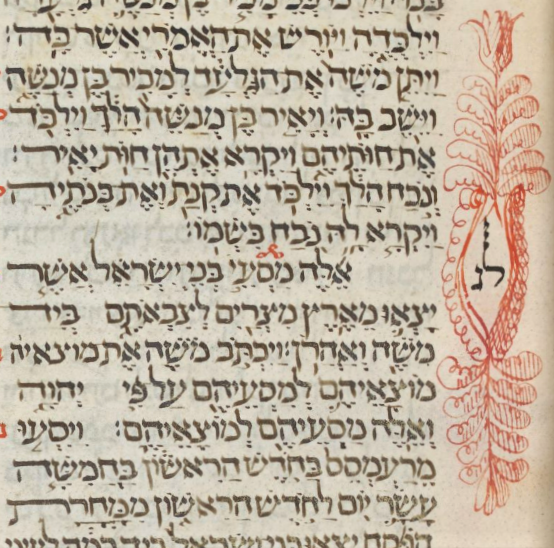 וילכדה ויורש את האמרי אשר בה׃
ויתן משה את הגלעד למכיר בן מנשה
וישב בה׃ ויאיר בן מנשה הלך וילכד
את חותיהם ויקרא אתהן חות יאיר׃
ונבח הלך וילכד את קנת ואת בנתיה
ויקרא לה נבח בשמו׃
אלה מסעי בני ישראל אשר
יצאו מארץ מצרים לצבאתם ביד
משה ואהרן׃ ויכתב משה את מוצאיה
מוצאיהם למסעיהם על פי יהוה
ואלה מסעיהם למוצאיהם׃ ויסעו
מרעמסס בחדש הראשון בחמשה
עשר יום לחדש הראשון ממחרת
הפסח יצאו בני ישראל ביד רמה לעיני
לג